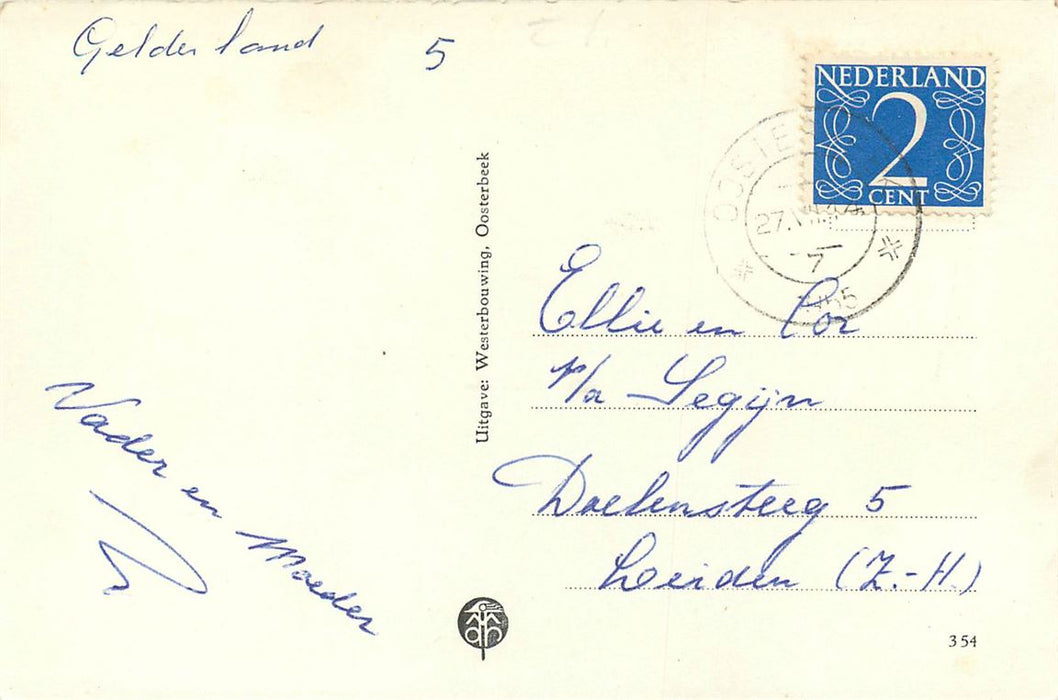 Gelderland 5
NEDERLAND
2
CENT
27.VII
-7
1955
Uitgave: Westerbouwing, Oosterbeek
Ellie en Cor
p/a Segijn
Doelensteeg 5
Leiden (Z.-H.)
Vader en Moeder
354